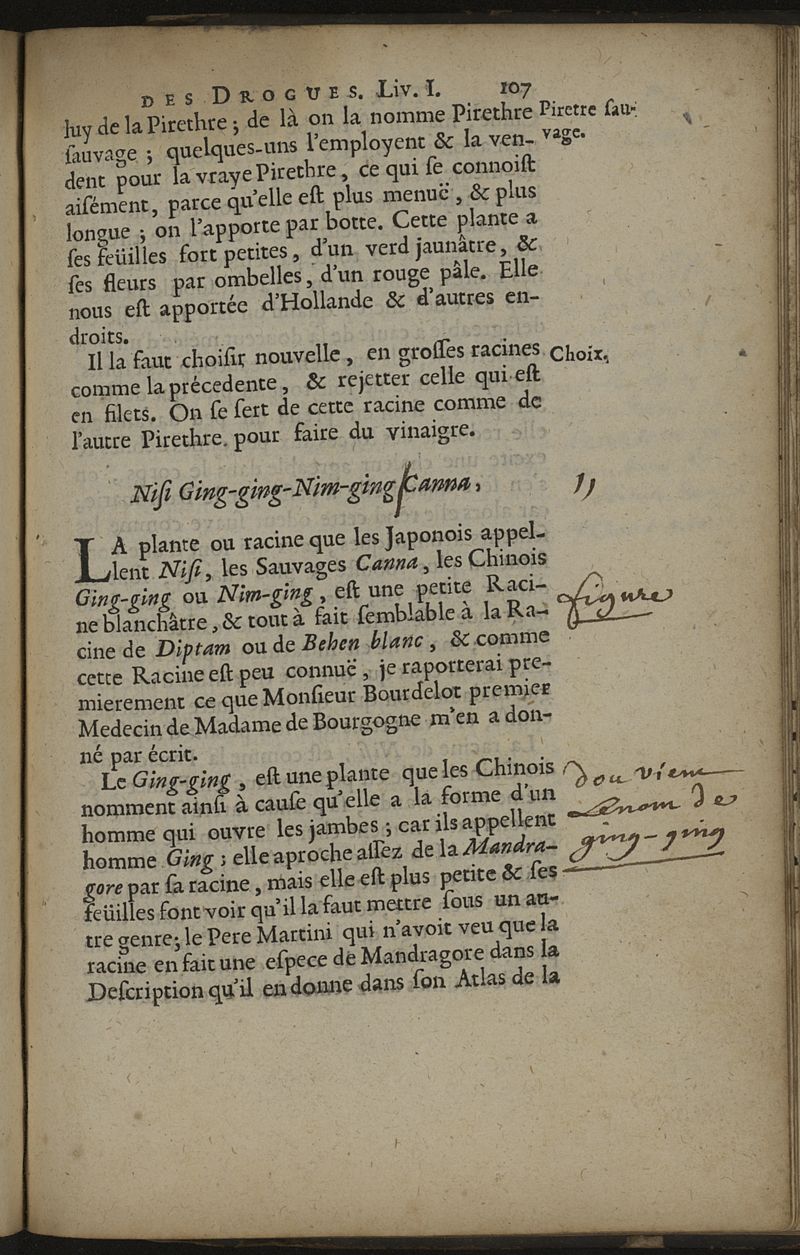 DES DROGUES. Liv. I. 107
luy de la Pirethre ; de là on la nomme Pirethre Piretre ſau-
ſauvage ; quelques-uns l'employent & la ven- vage.
dent pour la vraye Pirethre, ce qui ſe connoiſt
aiſément, parce qu'elle eſt plus menuë, & plus
longue ; on l'apporte par botte. Cette plante a
ſes feüilles fort petites, d'un verd jaunâtre, &
ſes fleurs par ombelles, d'un rouge pâle. Elle
nous eſt apportée d'Hollande & d'autres en-
droits.
Il la faut choiſir nouvelle, en groſſes racines Choix,
comme la précedente, & rejetter celle qui eſt
en filets. On ſe ſert de cette racine comme de
l'autre Pirethre. pour faire du vinaigre.
Niſi Ging-ging-Nim-ging Canna,
LA plante ou racine que les Japonois appel-
lent Niſi, les Sauvages Canna, les Chinois
Ging-ging ou Nim-ging, eſt une petite Raci-
ne blanchâtre, & tout à fait ſemblable à la Ra- figure
cine de Diptam ou de Behen blanc, & comme
cette Racine eſt peu connuë, je raporterai pre-
mierement ce que Monſieur Bourdelot premier
Medecin de Madame de Bourgogne m'en a don-
né par écrit.
Le Ging-ging, eſt une plante que les Chinois Dou vient
nomment ainſi à cauſe qu'elle a la forme d'un le nom de
homme qui ouvre les jambes ; car ils appellent
homme Ging ; elle aproche aſſez de la Mandra- ging-ging
gore par ſa racine, mais elle eſt plus petite & ſes
feüilles font voir qu'il la faut mettre ſous un au-
tre genre; le Pere Martini qui n'avoit veu que la
racine en fait une eſpece de Mandragore dans la
Deſcription qu'il en donne dans ſon Atlas de la